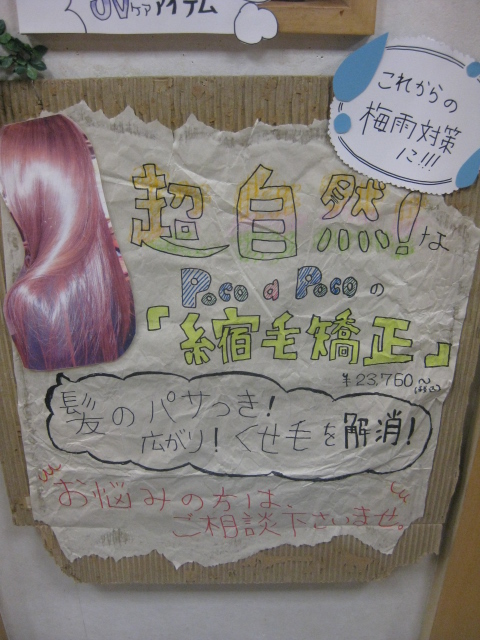 UVケアアイテム
これからの
梅雨対策
に!!!
超自然!な
Poco a Pocoの
「縮毛矯正」
¥23,760〜
髪のパサつき!
広がり!くせ毛を解消!
お悩みの方は、
ご相談下さいませ。